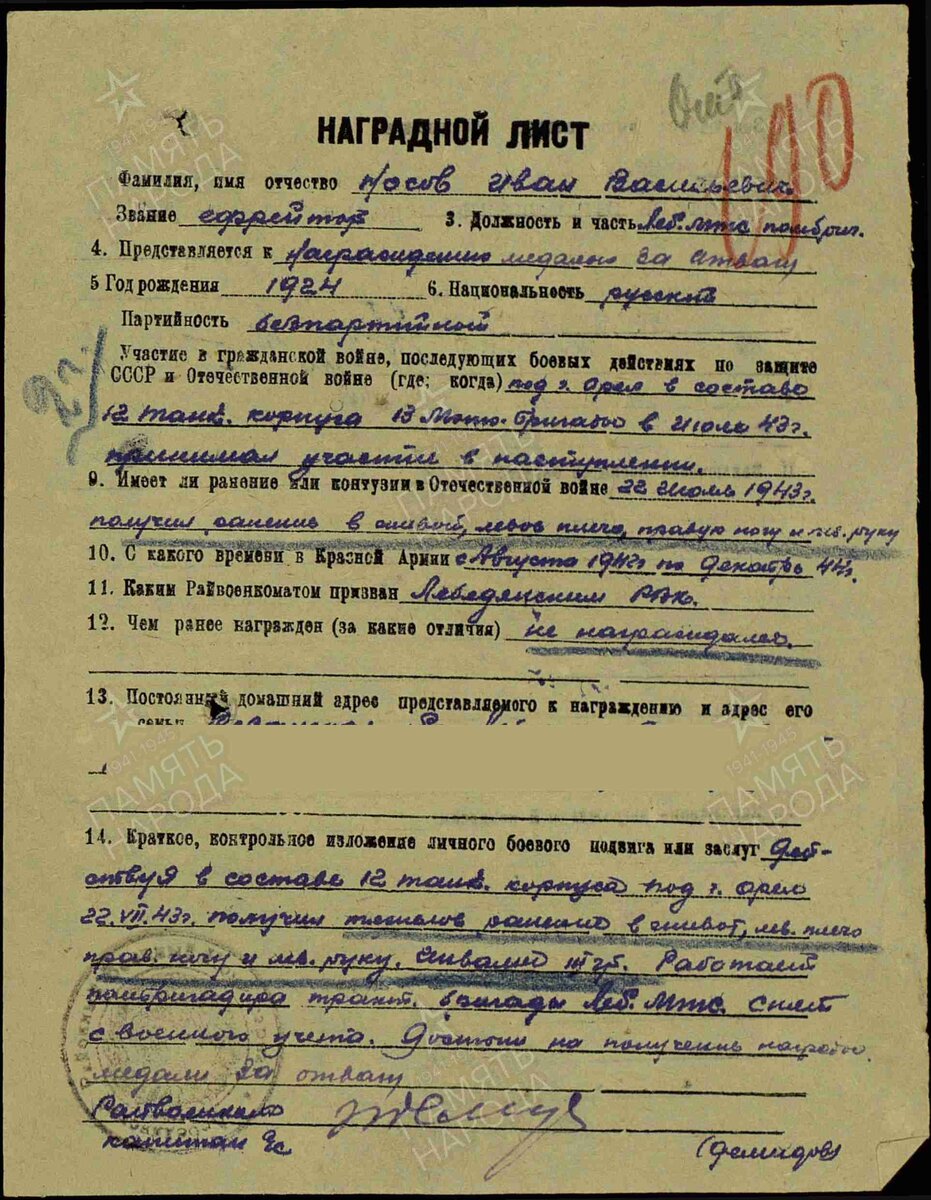 190
НАГРАДНОЙ ЛИСТ
Фамилия, имя отчество Носов Иван Васильевич
Звание ефрейтор 3. Должность и часть Леб. МТС помбриг.
4. Представляется к награждению медалью За отвагу
5 Год рождения 1924 6. Национальность русский
Партийность безпартийной
Участие в гражданской войне, последующих боевых действиях по защите
СССР и Отечественной войне (где; когда) под г. Орел в составе
12 танк. корпуса 13 Мото. Бригады в июле 43 г.
принимал участие в наступлении.
9. Имеет ли ранение или контузии в Отечественной войне 22 июль 1943 г.
получил ранение в живот, левое плечо, правую ногу и лев. руку
10. С какого времени в Красной Армии с Августа 1942 г по Декабрь 44 г.
11. Каким Райвоенкоматом призван Лебедянским РВК.
12. Чем ранее награжден (за какие отличия) не награждался.
13. Постоянный домашний адрес представляемого к награждению и адрес его
семьи
14. Краткое, контрольное изложение личного боевого подвига или заслуг Дей-
ствуя в составе 12 танк. корпуса под г. Орел
22.VII.43 г. получил тяжелое ранение в живот, лев. плечо
прав. ногу и лев. руку. Инвалид III гр. Работает
помбригадира тракт. бригады Леб. МТС. снят
с военного учета. Достоин на получение награды
медали За отвагу
Райвоенком
капитан
(Демидов)
ПАМЯТЬ НАРОДА
1941-1945